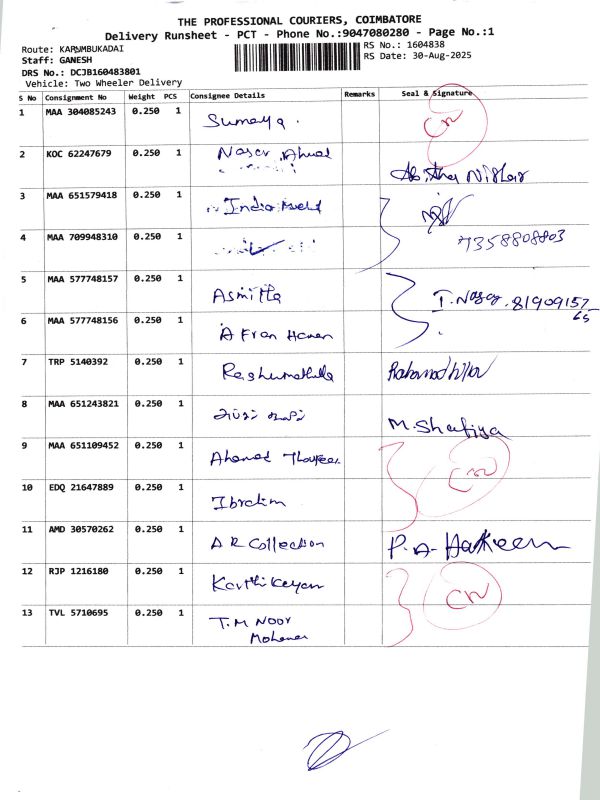 THE PROFESSIONAL COURIERS, COIMBATORE
Delivery Runsheet - PCT - Phone No.:9047080280 - Page No.:1
Route: KARUMBUKADAI
RS No.: 1604838
Staff: GANESH
RS Date: 30-Aug-2025
DRS No.: DCJB160483801
Vehicle: Two Wheeler Delivery
S No Consignment No Weight PCS Consignee Details Remarks Seal & Signature
1 MAA 304085243 0.250 1 Sumaya. CN
2 KOC 62247679 0.250 1 Nasar Ahmad
3 MAA 651579418 0.250 1 India
4 MAA 709948310 0.250 1 7358808803
5 MAA 577748157 0.250 1 Asmitha I. Nasar. 8190915765
6 MAA 577748156 0.250 1 A Fran
7 TRP 5140392 0.250 1
8 MAA 651243821 0.250 1 M. Shafiya
9 MAA 651109452 0.250 1 Ahamed CN
10 EDQ 21647889 0.250 1 Ibrahim
11 AMD 30570262 0.250 1 A R Collection P.A. Hakeem
12 RJP 1216180 0.250 1 Karthikeyan CN
13 TVL 5710695 0.250 1 T.M Noor